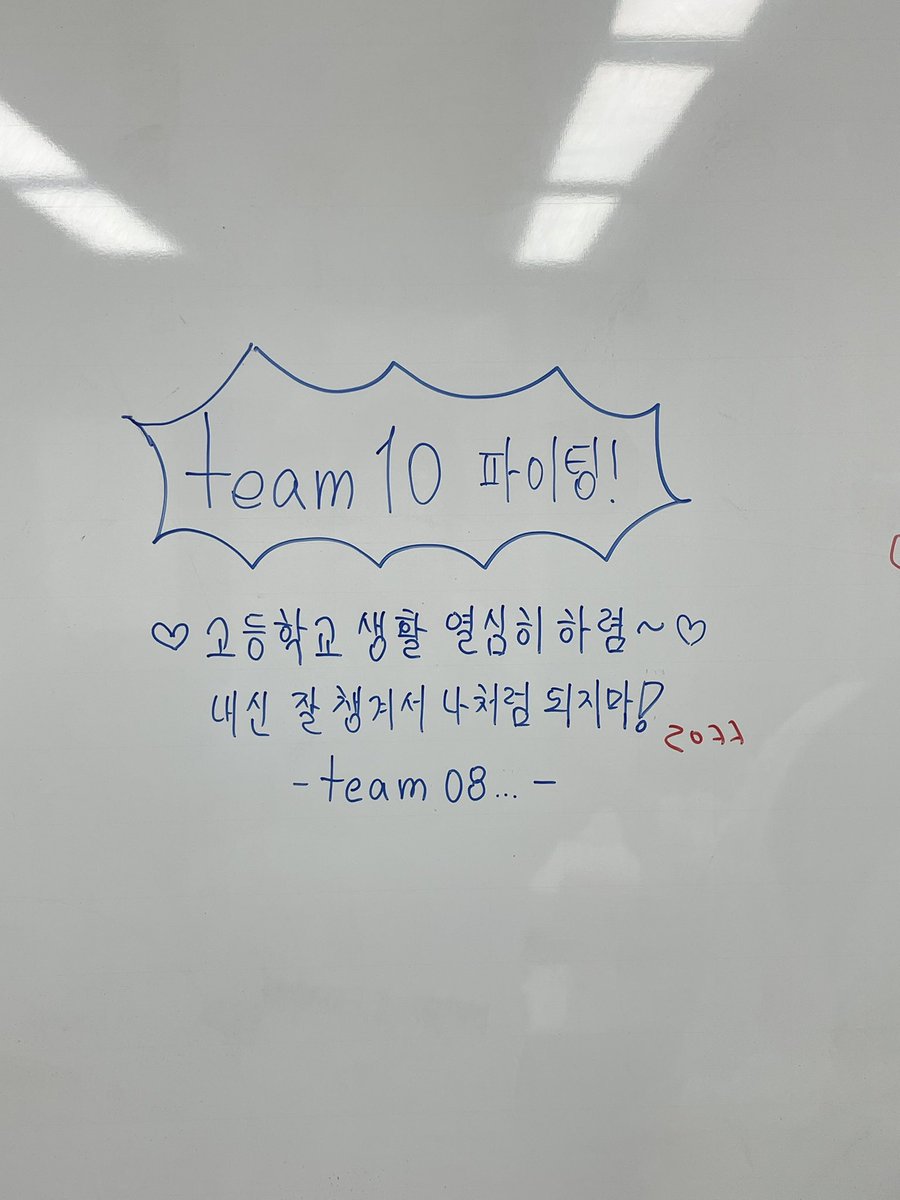 team 10 파이팅!
♡ 고등학교 생활 열심히 하렴~♡
내신 잘 챙겨서 나처럼 되지마!
ㄹㅇㅋㅋ
-team 08...-